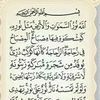 بِسْمِ اللَّهِ الرَّحْمَٰنِ الرَّحِيمِ
اللَّهُ نُورُ السَّمَاوَاتِ وَالْأَرْضِ مَثَلُ نُورِهِ
كَمِشْكَاةٍ فِيهَا مِصْبَاحٌ الْمِصْبَاحُ
فِي زُجَاجَةٍ الزُّجَاجَةُ كَأَنَّهَا كَوْكَبٌ دُرِّيٌّ
يُوقَدُ مِنْ شَجَرَةٍ مُبَارَكَةٍ زَيْتُونَةٍ